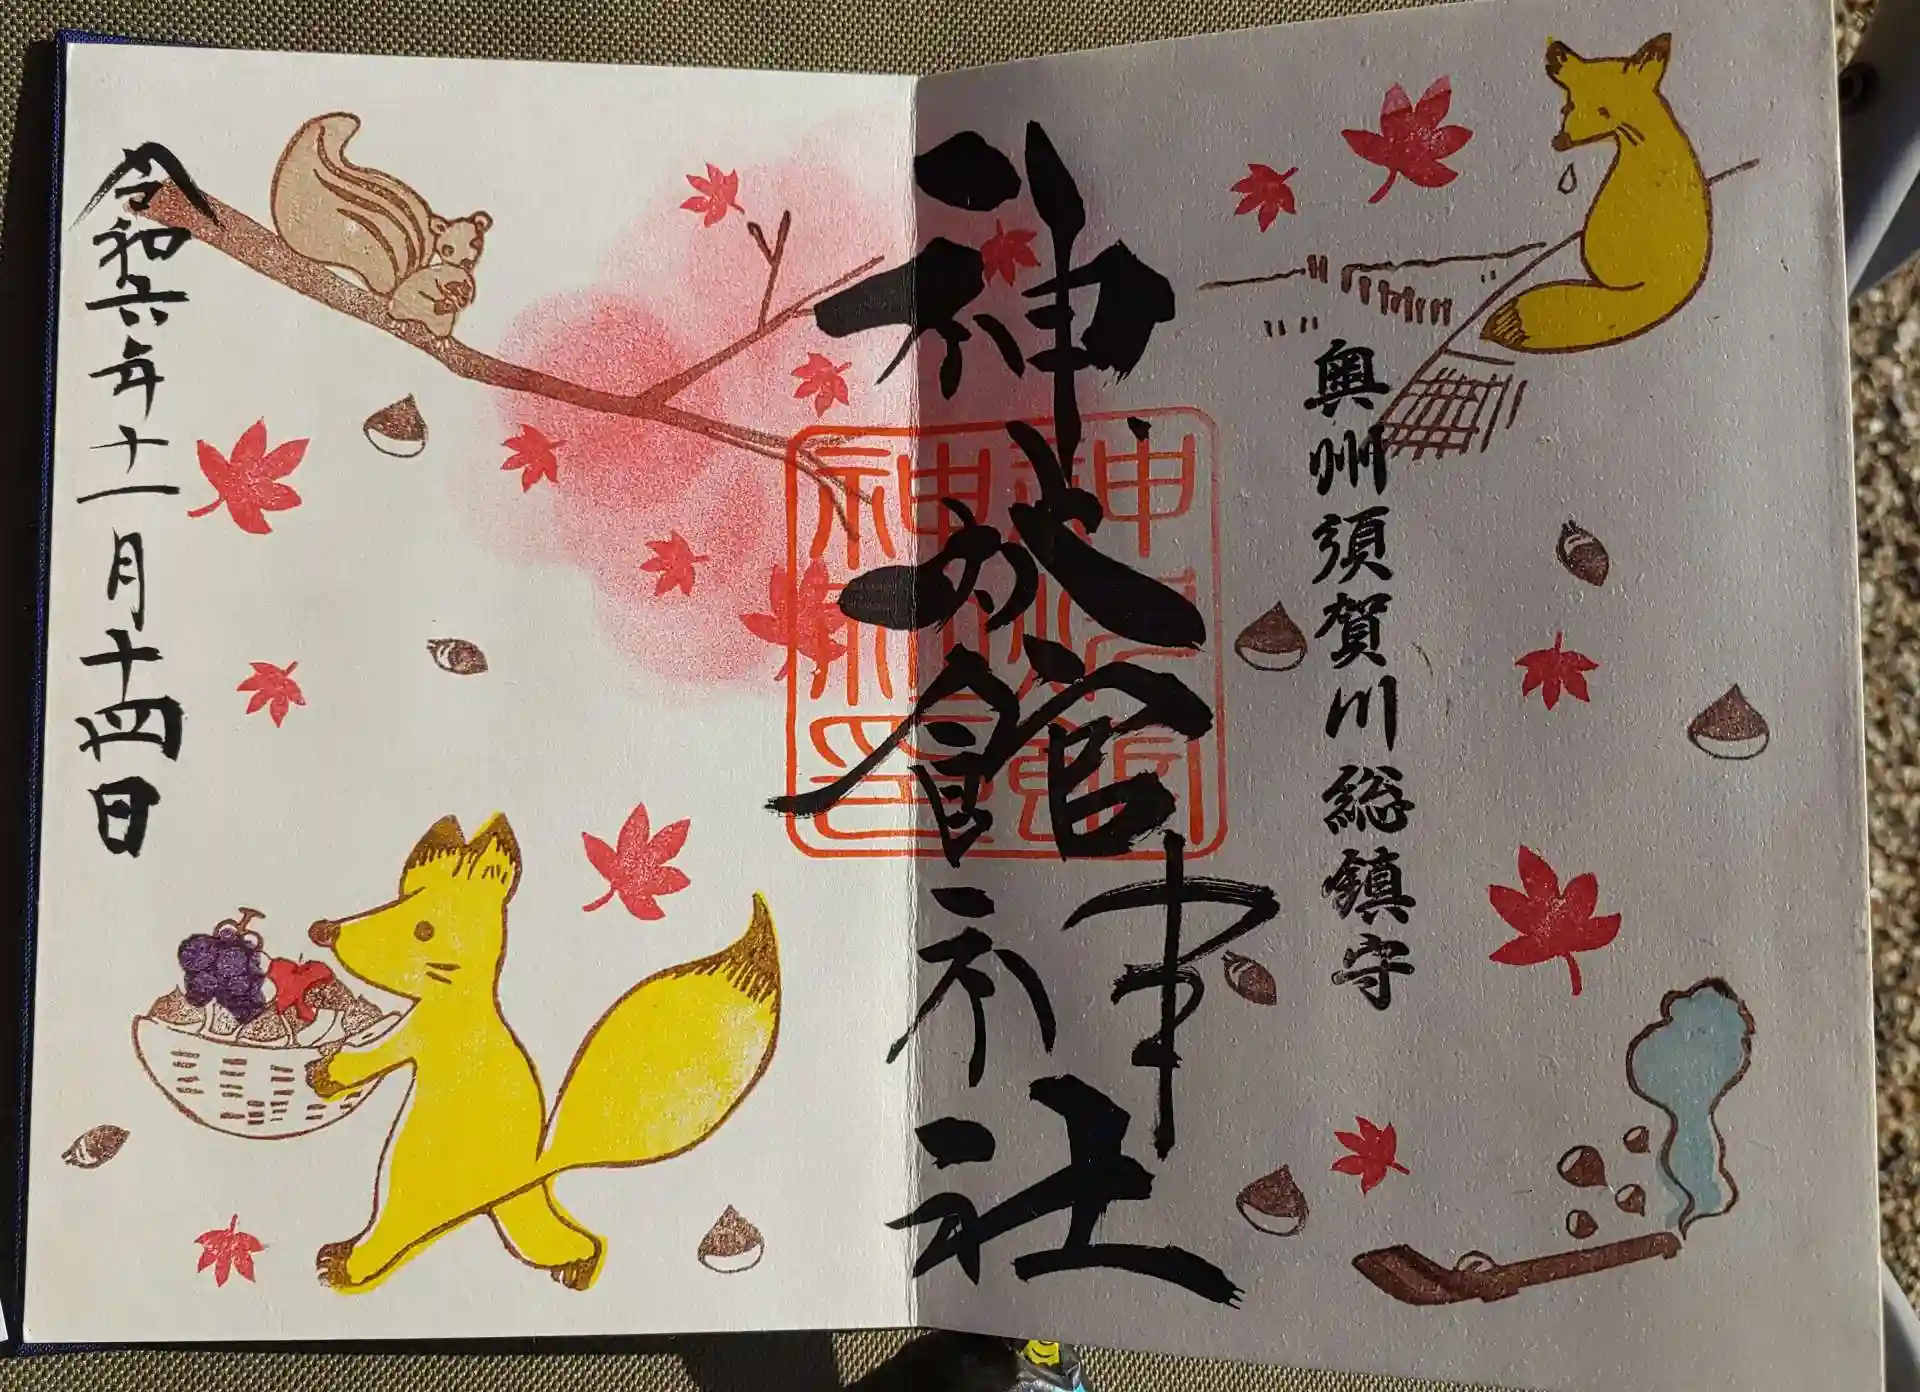 奥州須賀川総鎮守
神炊館神社
令和六年十一月十四日